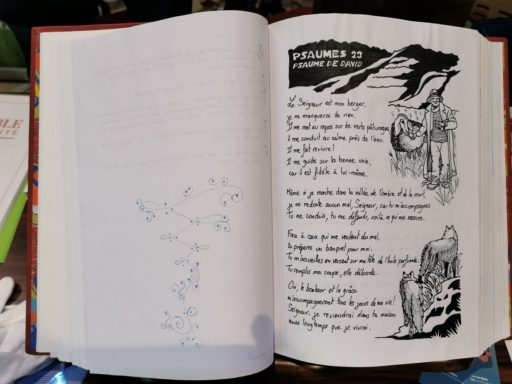 BLE
PSAUMES 23
PSAUME DE DAVID
Le Seigneur est mon berger,
je ne manquerai de rien.
Il me met au repos sur de verts pâturages,
il me conduit au calme près de l'eau.
Il me fait revivre!
Il me guide sur la bonne voie,
car il est fidèle à lui-même.
Même si je marche dans la vallée de l'ombre et de la mort,
je ne redoute aucun mal, Seigneur, car tu m'accompagnes.
Tu me conduis, tu me défends, voilà ce qui me rassure.
Face à ceux qui me veulent du mal,
tu prépares un banquet pour moi.
Tu m'accueilles en versant sur ma tête de l'huile parfumée.
Tu remplis ma coupe, elle déborde.
Oui, le bonheur et la grâce
m'accompagneront tous les jours de ma vie!
Seigneur, je reviendrai dans ta maison
aussi longtemps que je vivrai.